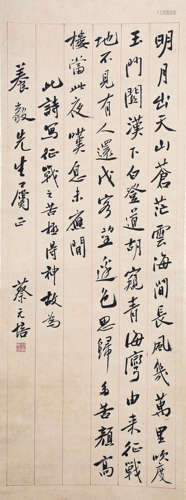 明月出天山蒼茫雲海間長風幾萬里吹度
玉門關漢下白登道胡窺青海灣由來征戰
地不見有人還戍客望邊色思歸多苦顏高
樓當此夜嘆息未應間
此詩寫征戰之苦極得神故為
養毅先生屬正 蔡元培